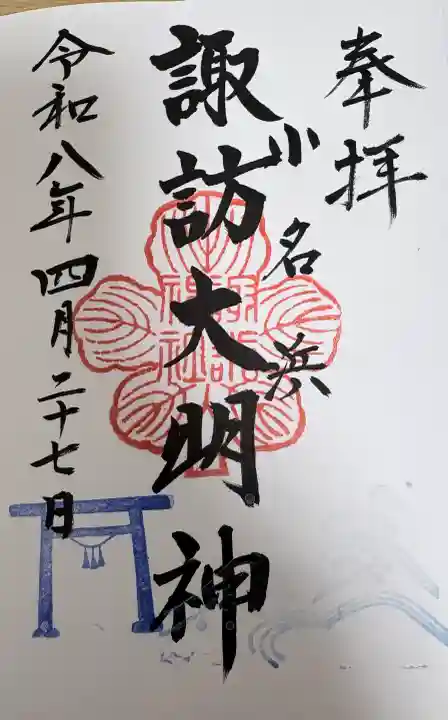 奉拝
小名浜
諏訪大明神
令和八年四月二十七日